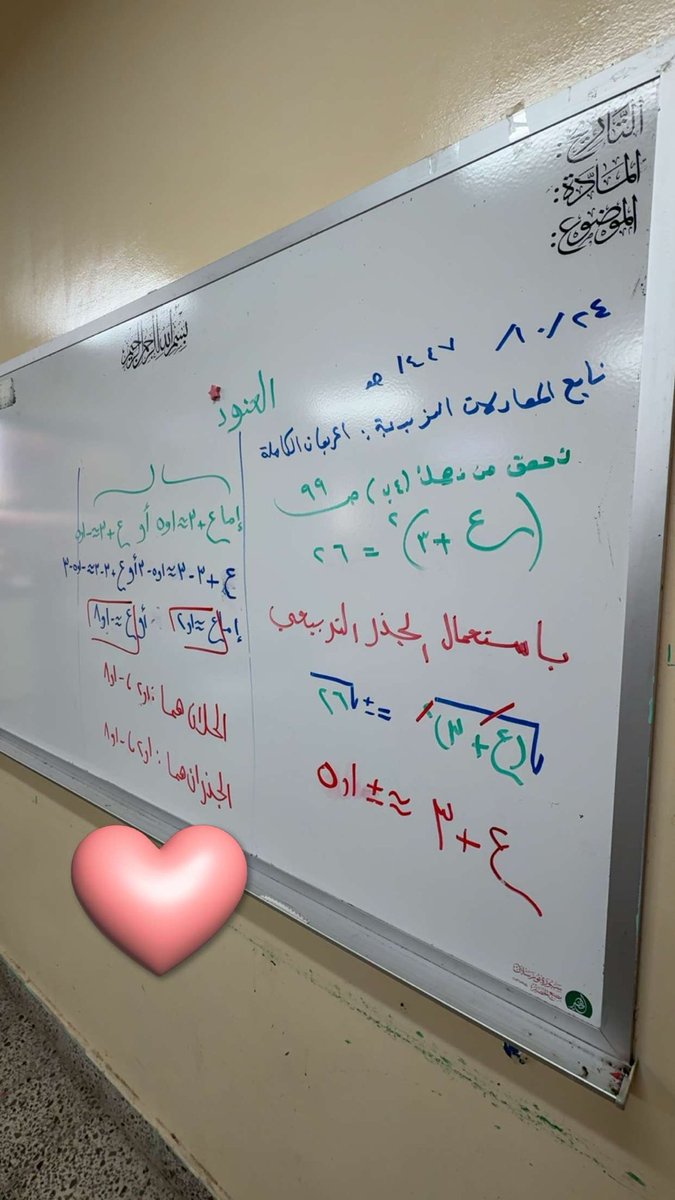 التاريخ:
المادة:
الموضوع:
بسم الله الرحمن الرحيم
٢٤ / ١٠ / ١٤٤٧ هـ
تابع المعادلات التربيعية: المربعات الكاملة
العنود
تحقق من فهمك (٤ب) ص ٩٩
(ع + ٣)٢ = ٢٦
باستعمال الجذر التربيعي
√(ع + ٣)٢ = ± √٢٦
ع + ٣ ≈ ± ٥,١
إما ع + ٣ ≈ ٥,١ أو ع + ٣ ≈ -٥,١
ع + ٣ - ٣ ≈ ٥,١ - ٣ أو ع + ٣ - ٣ ≈ -٥,١ - ٣
إما ع ≈ ٢,١ أو ع ≈ -٨,١
الحلان هما: ٢,١ ، -٨,١
الجذران هما: ٢,١ ، -٨,١